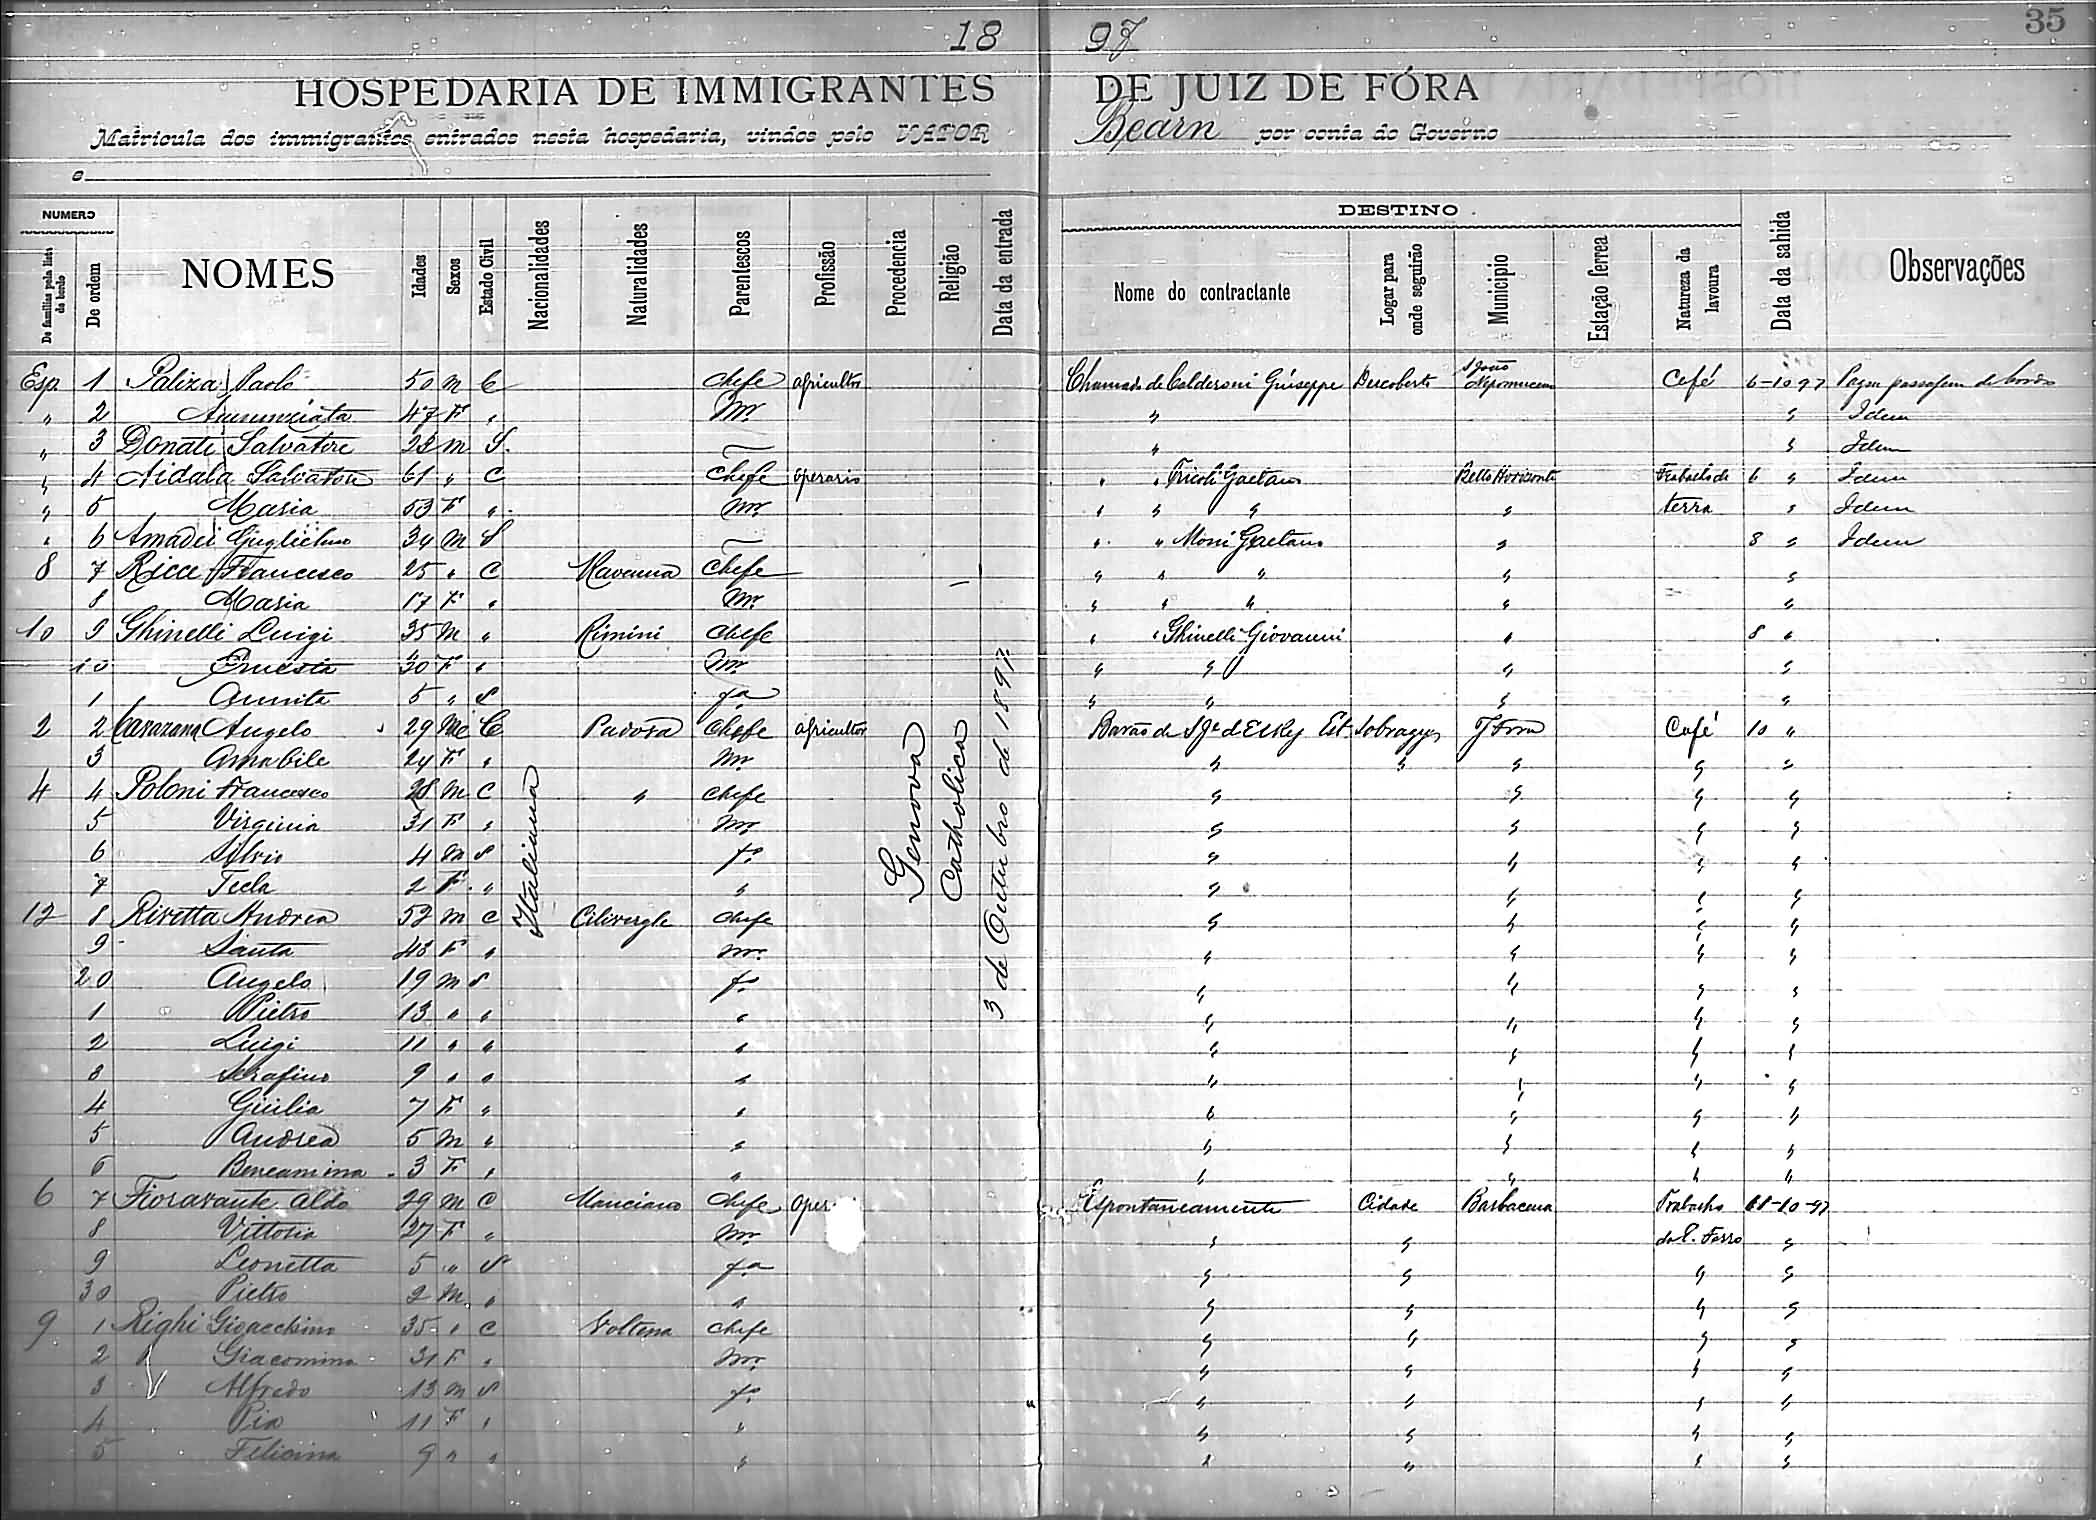 18 97
35
HOSPEDARIA DE IMMIGRANTES DE JUIZ DE FÓRA
Matricula dos immigrantes entrados nesta hospedaria, vindos pelo VAPOR Bearn por conta do Governo
e
NUMERO
De familias pela lista de bordo
De ordem
NOMES
Idades
Sexos
Estado Civil
Nacionalidades
Naturalidades
Parentescos
Profissão
Procedencia
Religião
Data da entrada
DESTINO
Nome do contractante
Logar para onde seguirão
Municipio
Estação ferrea
Natureza da lavoura
Data da sahida
Observações
Italiana
Genova
Catholica
3 de Outubro de 1897
Esp. 1 Paliza Paolo 50 M C Chefe agricultor Chamado de Calderoni Giuseppe Descoberto S João Nepomuceno Café 6-10-97 Pagou passagem de bordo
" 2 Annunziata 47 F " Mr. " " Idem
" 3 Donati Salvatore 22 M S. — " " Idem
" 4 Aidala Salvatore 61 " C Chefe operario " " Tricoli Gaetano Bello Horizonte Trabalho de 6 " Idem
" 5 Maria 53 F " Mr. " " " " terra " Idem
" 6 Amadei Guglielmo 34 M S — " " Moni Gaetano " 8 " Idem
8 7 Ricci Francesco 25 " C Ravenna Chefe " " " " "
8 Maria 17 F " Mr. " " " " "
10 9 Ghinelli Luigi 35 M " Rimini Chefe " " Ghinelli Giovanni " 8 "
10 Ernesta 30 F " Mr. " " " "
1 Annita 5 " S fa " " " "
2 2 Angelo 29 M C Padova Chefe agricultor Barão de Est. Sobragy J Fora Café 10 "
3 Amabile 24 F " Mr. " " " " "
4 4 Poloni Francesco 28 M C " Chefe " " " "
5 Virginia 31 F " Mr. " " " "
6 Silvio 4 M S fo " " " "
7 Tecla 2 F " " " " " "
12 8 Rivetta Andrea 52 M C Cilivergle Chefe " " " "
9 Santa 43 F " Mr. " " " "
20 Angelo 19 M S fo " " " "
1 Pietro 13 " " " " " " "
2 Luigi 11 " " " " " " "
3 Serafino 9 " " " " " " "
4 Giulia 7 F " " " " " "
5 Andrea 5 M " " " " " "
6 Beneamina 3 F " " " " " "
6 7 Fioravante Aldo 29 M C Manciano Chefe oper Espontaneamente Cidade Barbacena Trabalho 11-10-97
8 Vittoria 27 F " Mr. " " da E. Ferro "
9 Leonetta 5 " S fa " " " "
30 Pietro 2 M " " " " " "
9 1 Righi Gioacchino 35 " C Voltena Chefe " " " "
2 Giacomina 31 F " Mr. " " " "
3 Alfredo 13 M S fo " " " "
4 Pia 11 F " " " " " "
5 Felicina 9 " " " " " " "